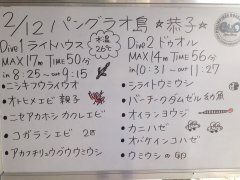 2/12 パングラオ島 ☆恭子☆
Dive1 ライトハウス
水温 26℃
MAX17m TIME50分
in 8:25 → out 9:15
・ニシキフウライウオ
・オトヒメエビ 親子
・ニセアカホシカクレエビ
・コガラシエビ 2匹
・アカフチリュウグウウミウシ
Dive2 ドゥオル
MAX14m TIME56分
in 10:31 → out 11:27
・シライトウミウシ
・バーチークダムゼル幼魚
・オイランヨウジ
・カニハゼ
・オバケインコハゼ
・ウミウシの卵